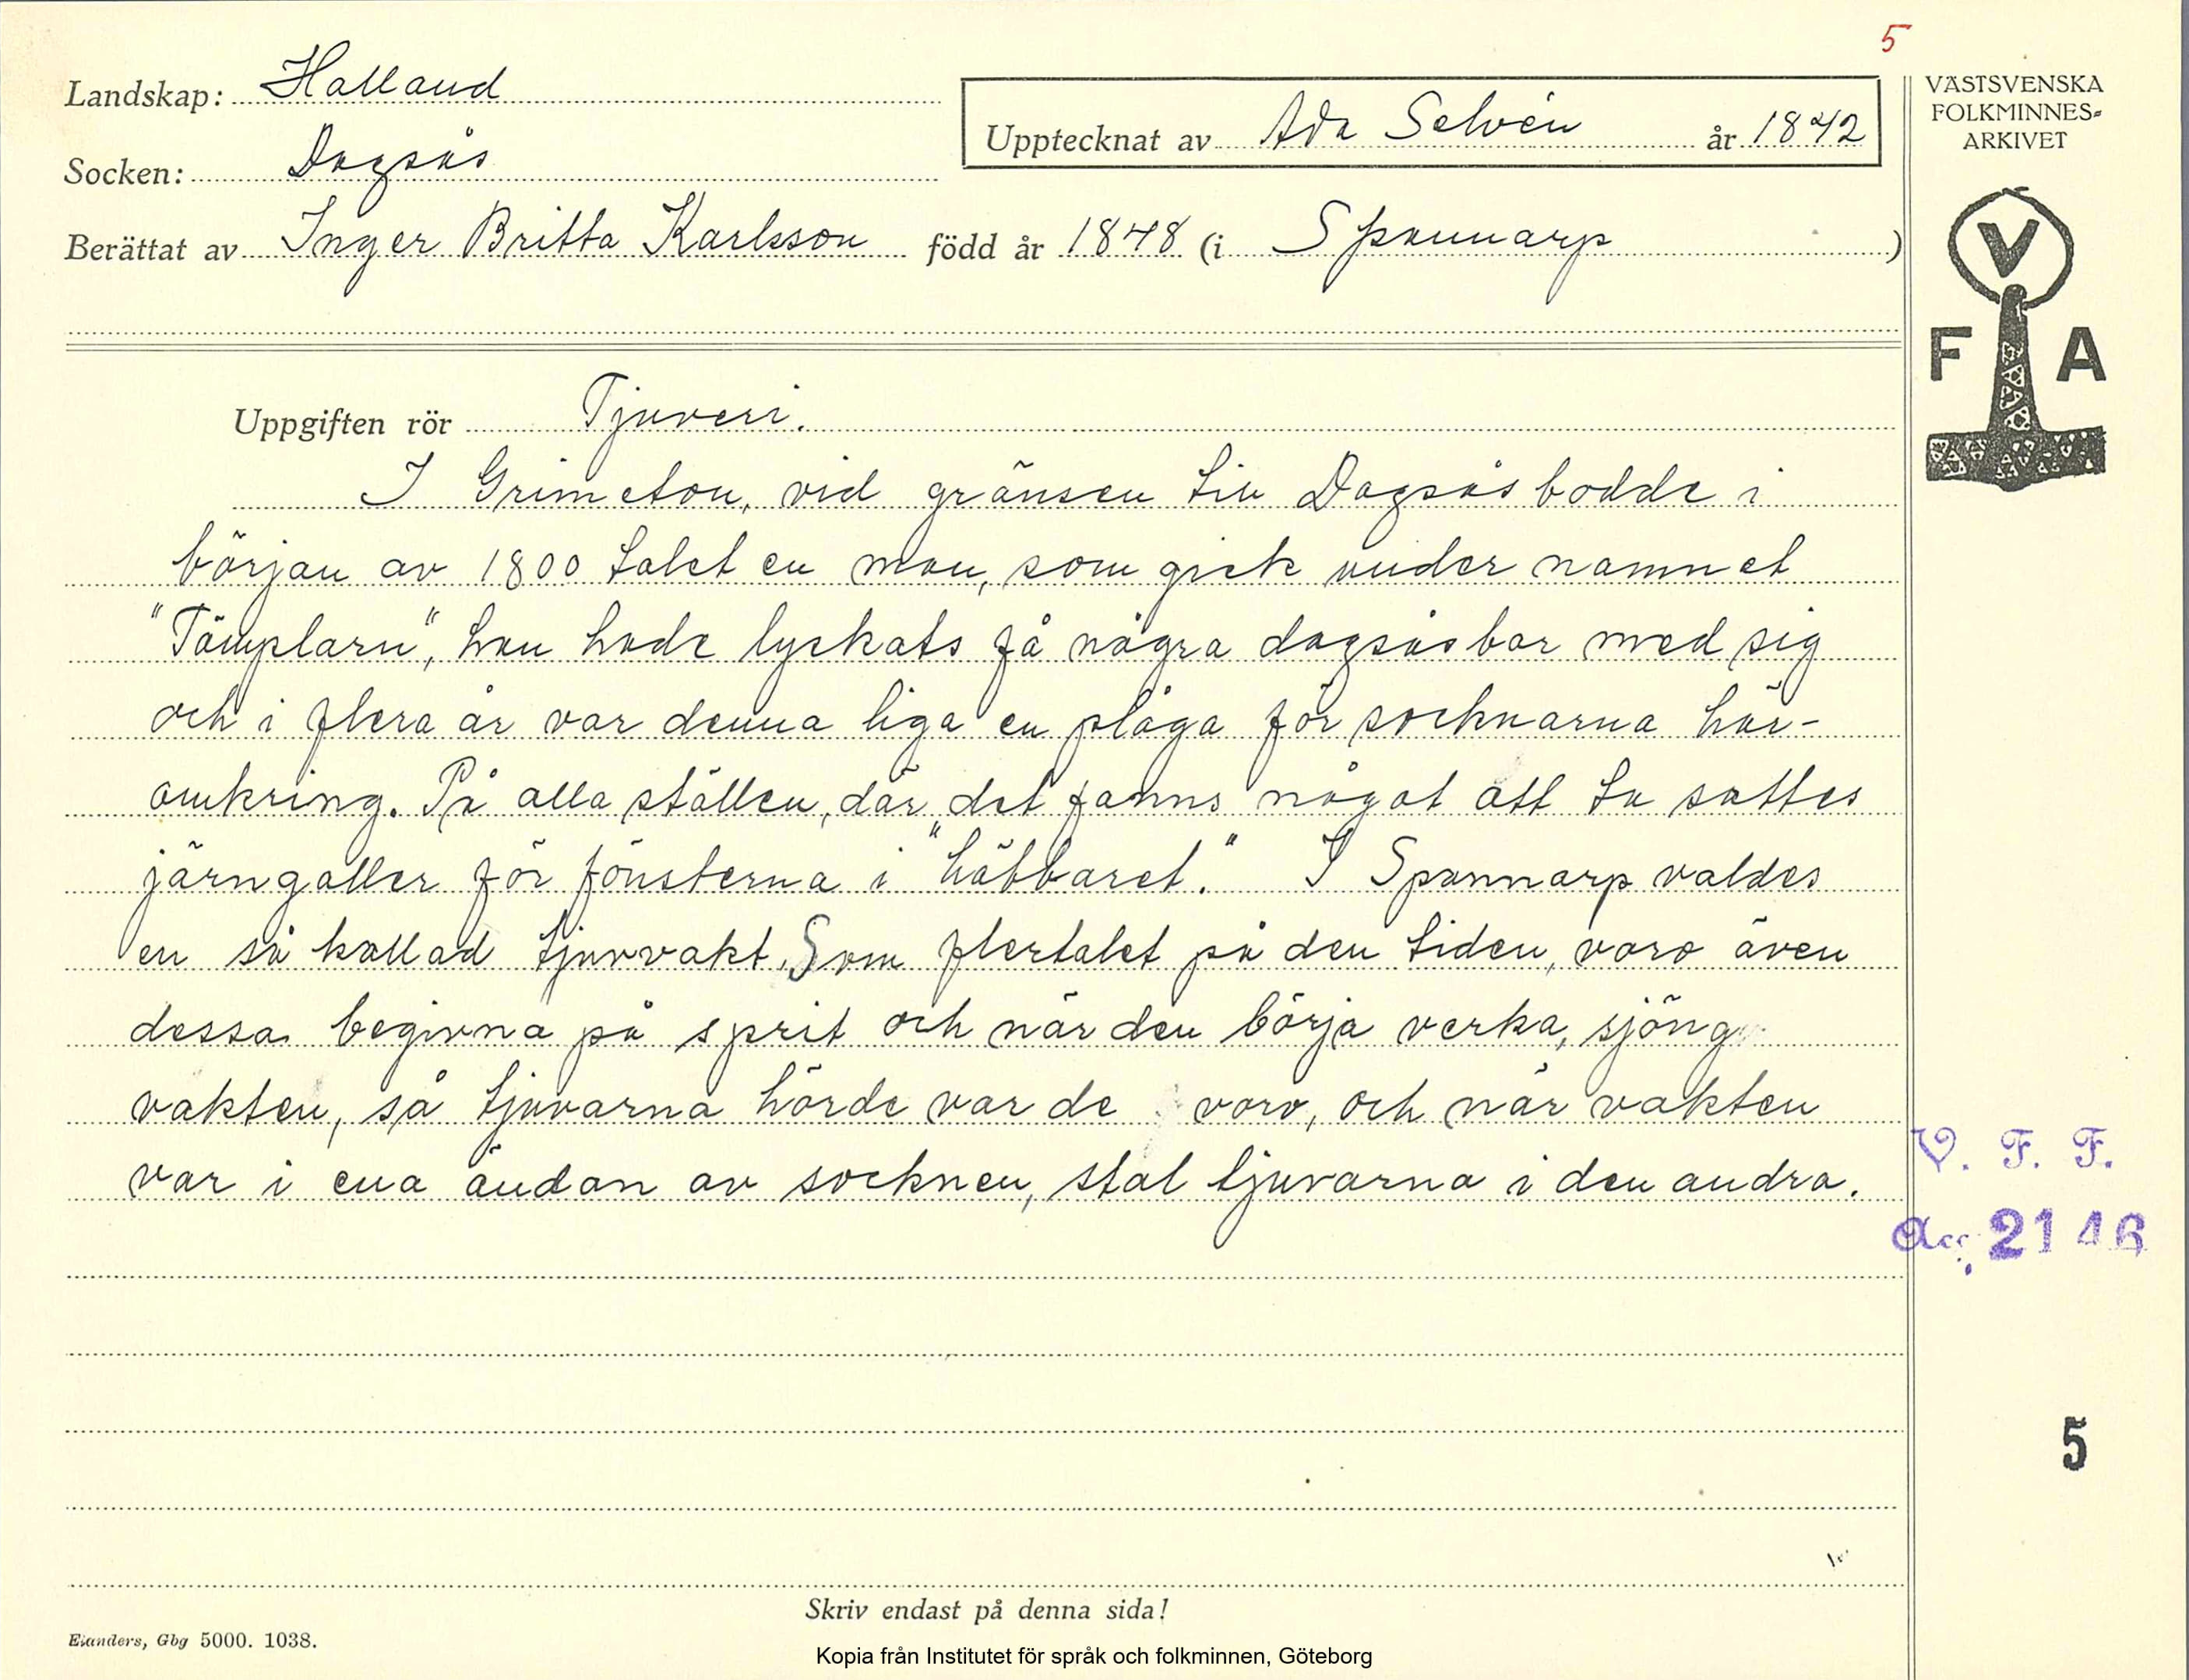 5
Landskap: Halland
Upptecknat av Ada Selvén år 1842
VÄSTSVENSKA
FOLKMINNES-
ARKIVET
Socken: Dagsås
Berättat av Inger Britta Karlsson född år 1848 (i Spannarp)
V
F A
Uppgiften rör Tjuveri.
I Grimeton, vid gränsen till Dagsås bodde i
början av 1800 talet en man, som gick under namnet
"Tämplarn", han hade lyckats få några dagsåsbor med sig
och i flera år var denna liga en plåga för socknarna här-
omkring. På alla ställen, där det fanns något att ta sattes
järngaller för fönsterna i "häbbaret." I Spannarp valdes
en så kallad tjuvvakt. Som flertalet på den tiden, voro även
dessa begivna på sprit och när den börja verka, sjöng
vakten, så tjuvarna hörde var de voro, och när vakten
var i ena ändan av socknen, stal tjuvarna i den andra.
V. F. F.
Acc. 2146
5
Skriv endast på denna sida!
Elanders, Gbg 5000. 1038.
Kopia från Institutet för språk och folkminnen, Göteborg